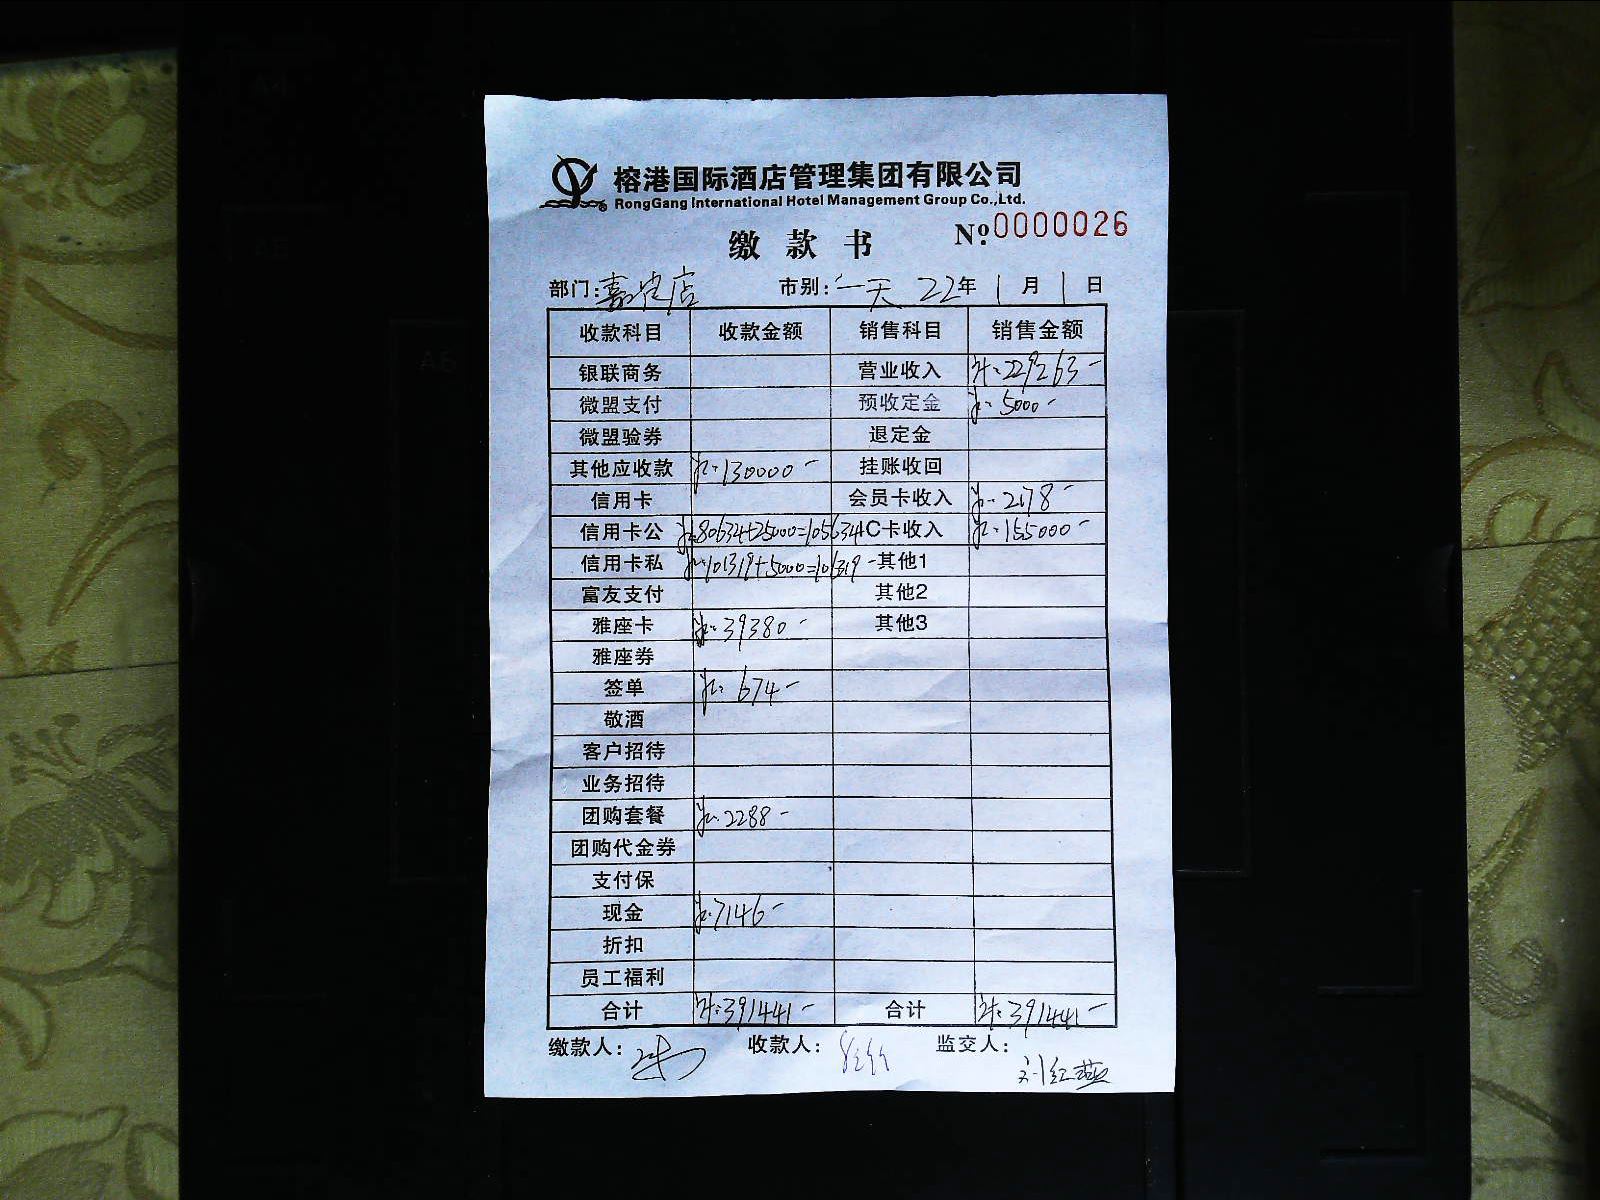 榕港国际酒店管理集团有限公司
RongGang International Hotel Management Group Co.,Ltd.
缴款书 Nº:0000026
部门:嘉定店 市别:一天 22年1月1日
收款科目 收款金额 销售科目 销售金额
银联商务 营业收入 229263-
微盟支付 预收定金 5000-
微盟验券 退定金
其他应收款 130000- 挂账收回
信用卡 会员卡收入 2178-
信用卡公 80634+25000=105634 C卡收入 155000-
信用卡私 101319+5000=106319- 其他1
富友支付 其他2
雅座卡 39380- 其他3
雅座券
签单 674-
敬酒
客户招待
业务招待
团购套餐 2288-
团购代金券
支付保
现金 7146-
折扣
员工福利
合计 391441- 合计 391441-
缴款人: 收款人: 监交人:
刘红燕